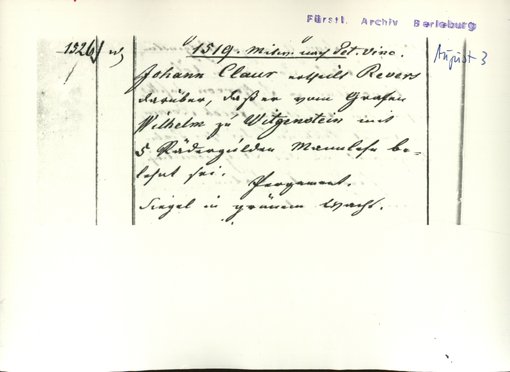 Fürstl. Archiv Berleburg
1526/ w)
1519. Mitw. nach Pet. Vinc.
August 3
Johann Claur ertheilt Revers
darüber, daß er vom Grafen
Wilhelm zu Witgenstein mit
5 Rädergülden Mannlehn be=
lehnt sei.
Pergament.
Siegel in grünem Wachs.